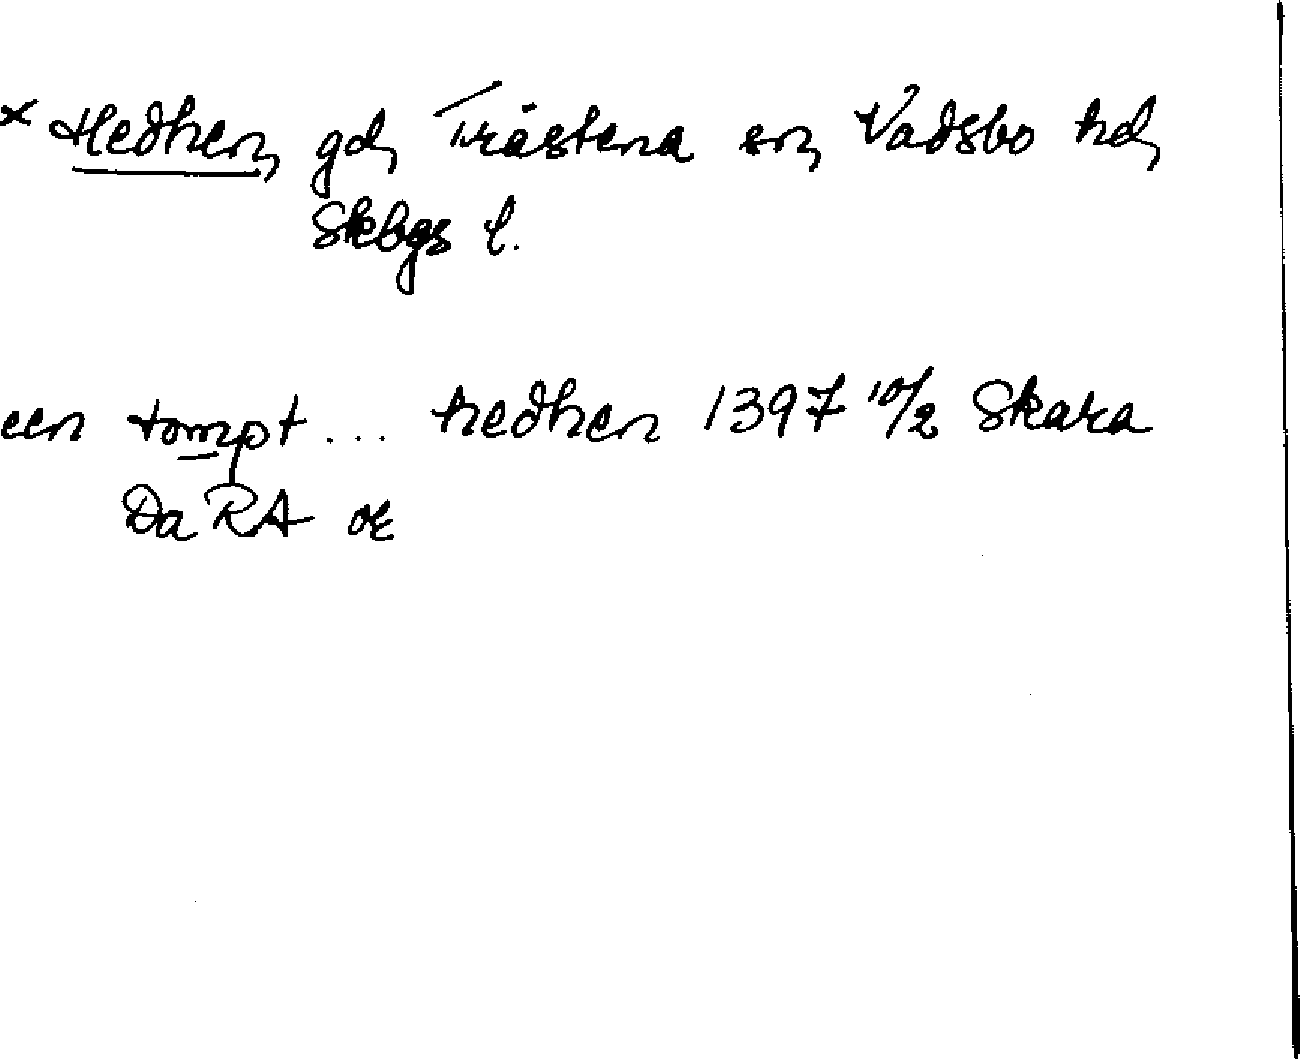 × Hedhen, gd, Trästena sn, Vadsbo hd,
Skbgs l.
een tompt ... hedhen 1397 10/2 Skara
Da RA or